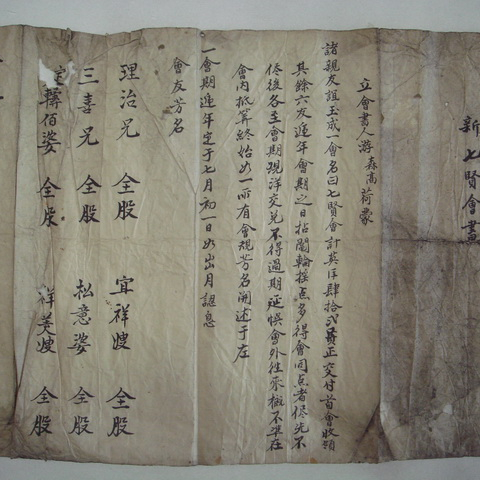 新七賢會書
立會書人游森高荷蒙
諸親友誼玉成一會名曰七賢會計英洋肆拾弍員正交付首會收領
其餘六友遞年會期之日拈鬮輪接點多得會同点者俟先不
俟後各至會期現洋交兌不得過期延悞會外往來概不準在
會內抵算終始如一所有會規芳名開述于左
一會期遞年定于七月初一日如出月認息
會友芳名
理治兄 仝股 宜祥嫂 仝股
三喜兄 仝股 松意婆 仝股
佰婆 仝股 祥美嫂 仝股